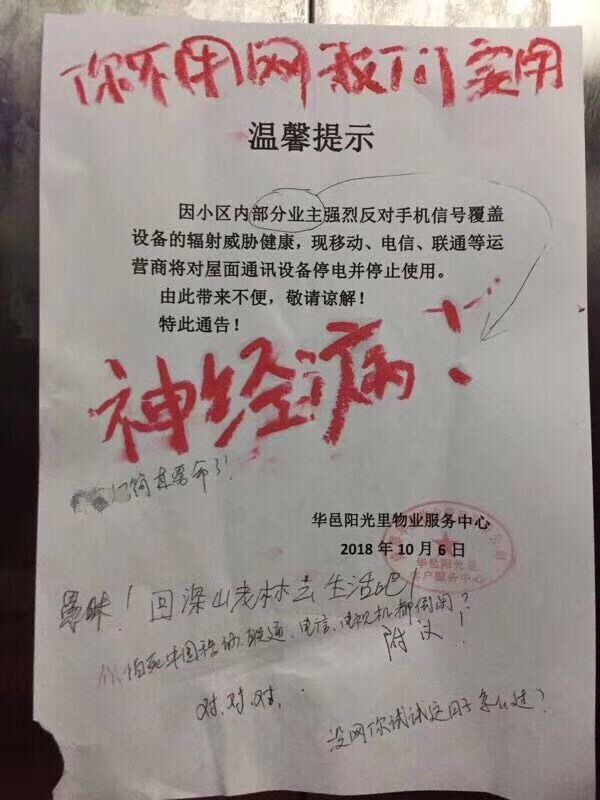 你不用网我们实用
温馨提示
因小区内部分业主强烈反对手机信号覆盖
设备的辐射威胁健康，现移动、电信、联通等运
营商将对屋面通讯设备停电并停止使用。
由此带来不便，敬请谅解！
特此通告！
神经病！
简直要命了！
华邑阳光里物业服务中心
2018年10月6日
华邑阳光里
客户服务中心
愚昧！回深山老林去生活吧！
你怕死中国移动、联通、电信、电视机都倒闭？
附议！
对、对、对、
没网你试试这日子怎么过？